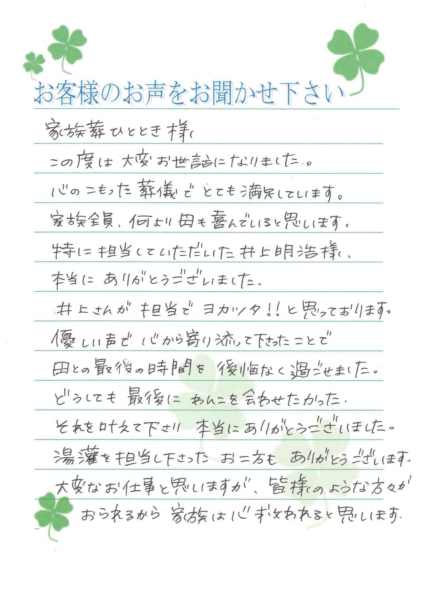 お客様のお声をお聞かせ下さい
家族葬ひととき様
この度は大変お世話になりました。
心のこもった葬儀でとても満足しています。
家族全員、何より母も喜んでいると思います。
特に担当していただいた井上明浩様、
本当にありがとうございました。
井上さんが担当でヨカッタ!!と思っております。
優しい声で心から寄り添って下さったことで
母との最後の時間を後悔なく過ごせました。
どうしても最後にわんこを会わせたかった.
それを叶えて下さり本当にありがとうございました。
湯灌を担当し下さったお二方もありがとうございます.
大変なお仕事と思いますが、皆様のような方々が
おられるから家族は心救われると思います.